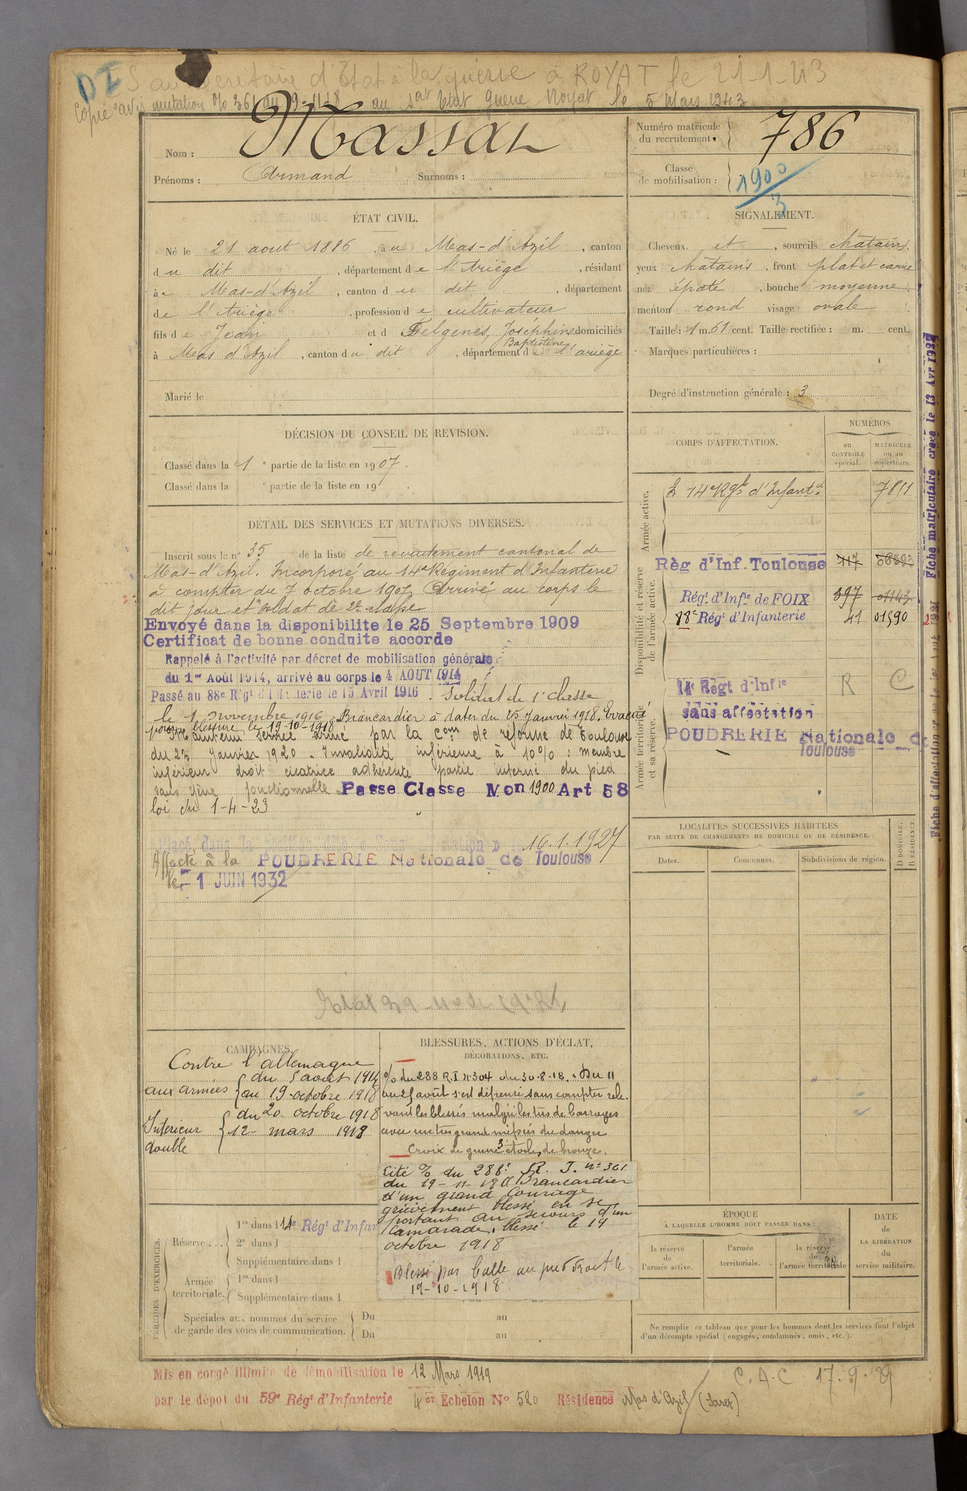 DI S au Secrétaire d'Etat à la guerre à ROYAT le 21-1-43
Copie avis mutation % 361 du 19-11-18 au Sat Etat guerre Royat le 5 Mars 1943
Nom : Massat
Prénoms : Armand Surnoms :
Numéro matricule du recrutement : 786
Classe de mobilisation : 1900
3
ÉTAT CIVIL.
Né le 21 août 1886, à u Mas-d'Azil, canton
d u dit, département d e l'Ariège, résidant
à u Mas-d'Azil, canton d u dit, département
d e l'Ariège, profession d e cultivateur
fils d e Jean et d Felgines, Joséphine Baptistine domiciliés
à Mas d'Azil, canton d u dit, département d e l'ariège
Marié le
SIGNALEMENT.
Cheveux et, sourcils chatain
yeux chatains, front plat et carré
nez épaté, bouche moyenne
menton rond visage ovale
Taille : 1 m. 61 cent. Taille rectifiée : m. cent.
Marques particulières :
Degré d'instruction générale : 3
DÉCISION DU CONSEIL DE REVISION.
Classé dans la 1e partie de la liste en 1907.
Classé dans la e partie de la liste en 19
DÉTAIL DES SERVICES ET MUTATIONS DIVERSES.
Inscrit sous le n° 35 de la liste de recrutement cantonal de
Mas-d'Azil. Incorporé au 14e Régiment d'Infanterie
à compter du 7 octobre 1907. Arrivé au corps le
dit jour et soldat de 2e classe
Envoyé dans la disponibilite le 25 Septembre 1909
Certificat de bonne conduite accorde
Rappelé à l'activité par décret de mobilisation générale
du 1er Août 1914, arrivé au corps le 4 AOUT 1914
Passé au 88e Rgt d'Infanterie le 15 Avril 1916. Soldat de 1e classe
le 1 novembre 1916. Brancardier à dater du 15 Janvier 1918. Evacué
pour blessure le 19-10-1918
Maintenu service armé par la Com de réforme de Toulouse
du 23 Janvier 1920. Invalidité inférieure à 10% : membre
inférieur droit cicatrice adhérente partie interne du pied
sans gêne fonctionnelle Passe Classe Mon 1900 Art 58
loi du 1-4-23
16.1.1927
Affecté à la POUDRERIE Nationale de Toulouse
le - 1 JUIN 1932
CORPS D'AFFECTATION.
NUMÉROS
AU CONTRÔLE spécial.
MATRICULE ou au répertoire.
Armée active.
Le 14e Rgt d'Infantie 7811
Disponibilité et réserve de l'armée active.
Rég d'Inf. Toulouse 117
Régt d'Infie de FOIX 397 01143
88e Régt d'Infanterie 41 01590
Armée territoriale et sa réserve.
14e Régt d'Infie R C
sans affectation
POUDRERIE Nationale de
Toulouse
Fiche matriculaire créée le 13 Avr 1932
LOCALITÉS SUCCESSIVES HABITÉES
PAR SUITE DE CHANGEMENTS DE DOMICILE OU DE RÉSIDENCE.
Dates. Communes. Subdivisions de région. D DOMICILE. R RÉSIDENCE.
CAMPAGNES.
Contre l'allemagne
aux armées { du 5 aout 1914
au 19 octobre 1918
Intérieur { du 20 octobre 1918
double 12 mars 1918
BLESSURES, ACTIONS D'ÉCLAT,
DÉCORATIONS, ETC.
% du 288 R.I N° 304 du 30-8-18. Du 11
au 25 août s'est dépensé sans compter rele-
vant les blessés malgré les tirs de barrages
avec un très grand mépris du danger
Croix de guerre 3 étoiles de bronze.
Cité % du 288e R. I. n° 361
du 19-11-18 " Brancardier
d'un grand courage
grièvement blessé en se
portant au secours d'un
camarade, blessé le 19
octobre 1918
Blessé par balle au pied droit le
19-10-1918
PÉRIODES D'EXERCICES.
Réserve... 1re dans l 14e Régt d'Infan
2e dans l
Supplémentaire dans l
Armée territoriale. 1re dans l
Supplémentaire dans l
Spéciales aux hommes du service de garde des voies de communication. Du au
Du au
ÉPOQUE
À LAQUELLE L'HOMME DOIT PASSER DANS :
la réserve de l'armée active.
l'armée territoriale.
la réserve de l'armée territoriale
DATE DE LA LIBÉRATION du service militaire.
Ne remplir ce tableau que pour les hommes dont les services font l'objet
d'un décompte spécial (engagés, condamnés, omis, etc.).
Mis en congé illimité de démobilisation le 12 Mars 1919
par le dépôt du 59e Régt d'Infanterie 4e Echelon N° 520 Résidence Mas d'Azil
C.A.C 17.9.